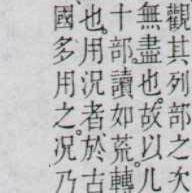 觀其列部之次
無盡也。故以凡
十部。讀如荒。轉
也。用況者於古
國多用之。況乃